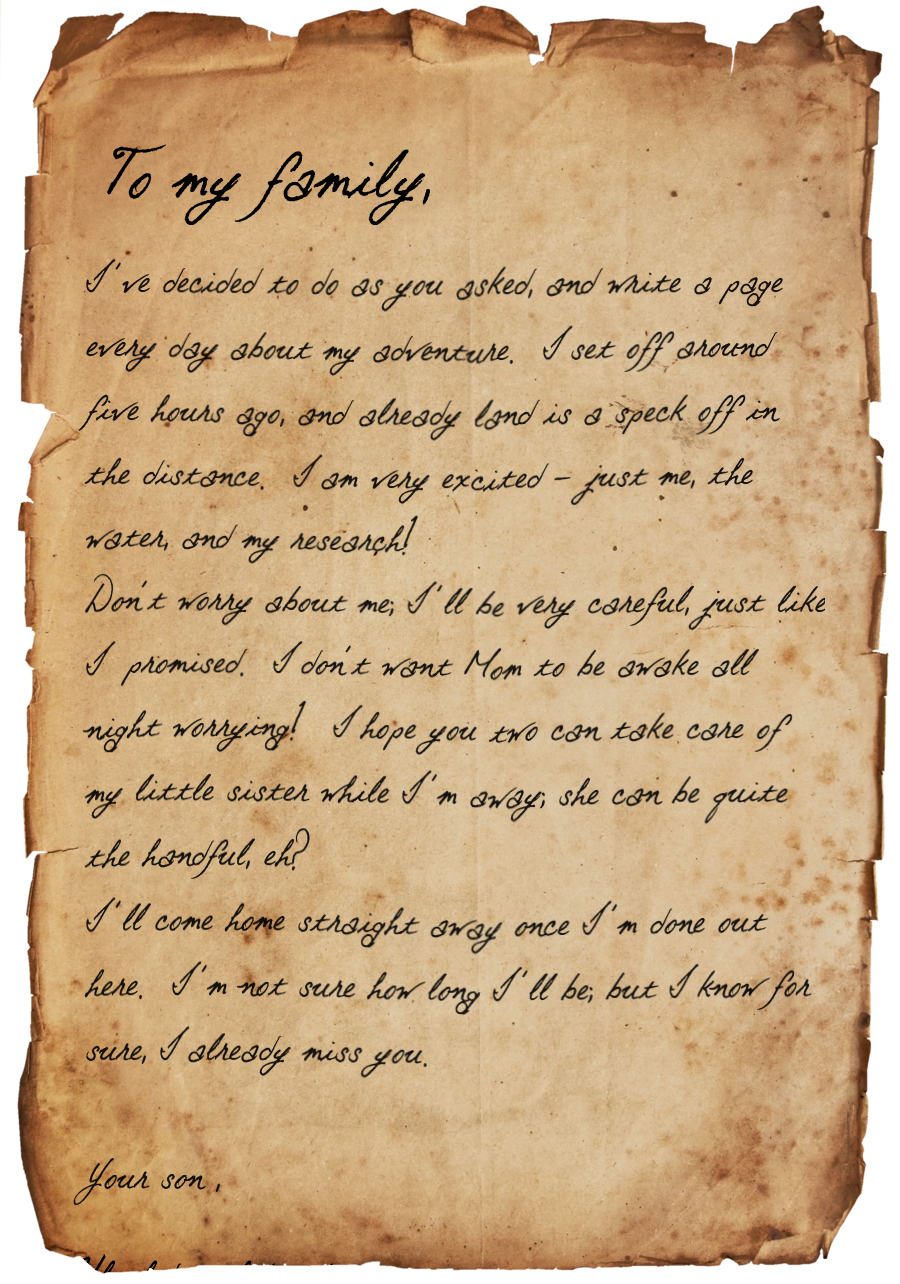 To my family,
I've decided to do as you asked, and write a page
every day about my adventure. I set off around
five hours ago, and already land is a speck off in
the distance. I am very excited - just me, the
water, and my research!
Don't worry about me; I'll be very careful, just like
I promised. I don't want Mom to be awake all
night worrying! I hope you two can take care of
my little sister while I'm away; she can be quite
the handful, eh?
I'll come home straight away once I'm done out
here. I'm not sure how long I'll be; but I know for
sure, I already miss you.
Your son,